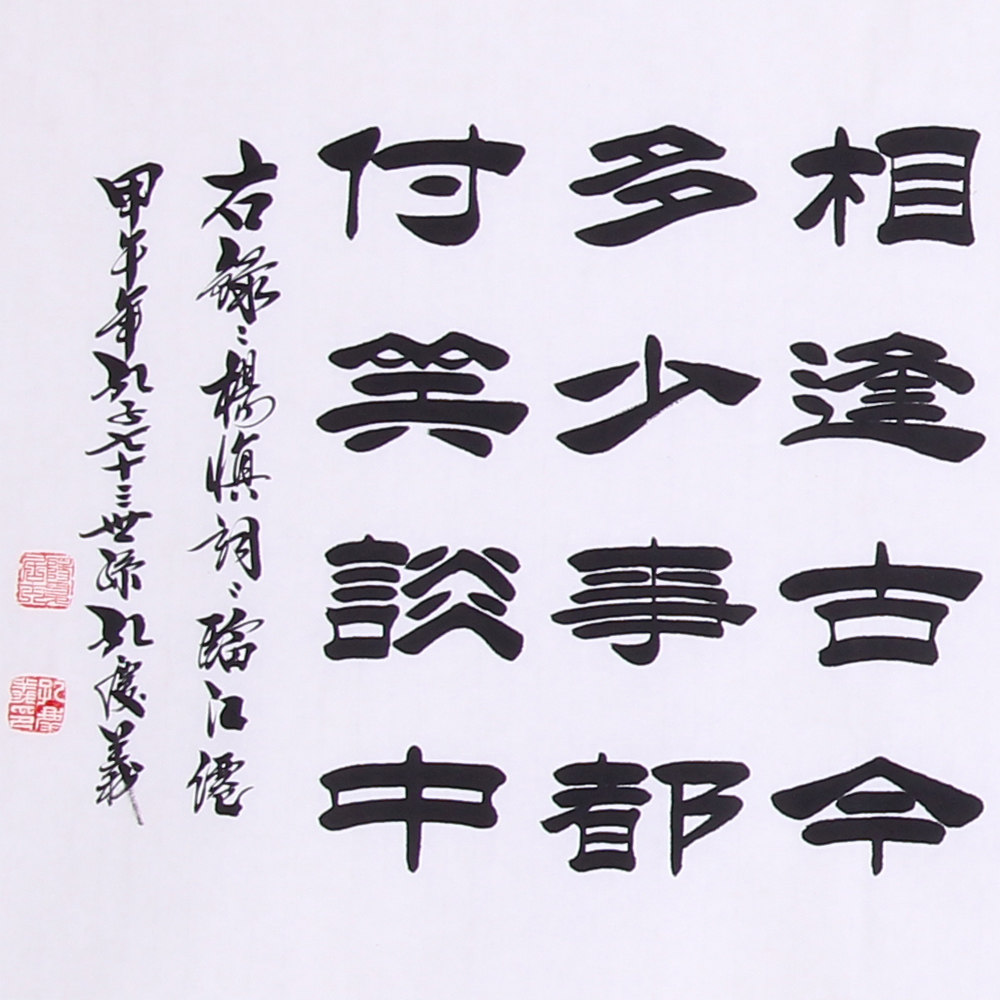 相逢古今
多少事都
付笑談中
右錄楊慎詞臨江僊
甲午年孔子七十三世孫孔慶義
孔慶義印